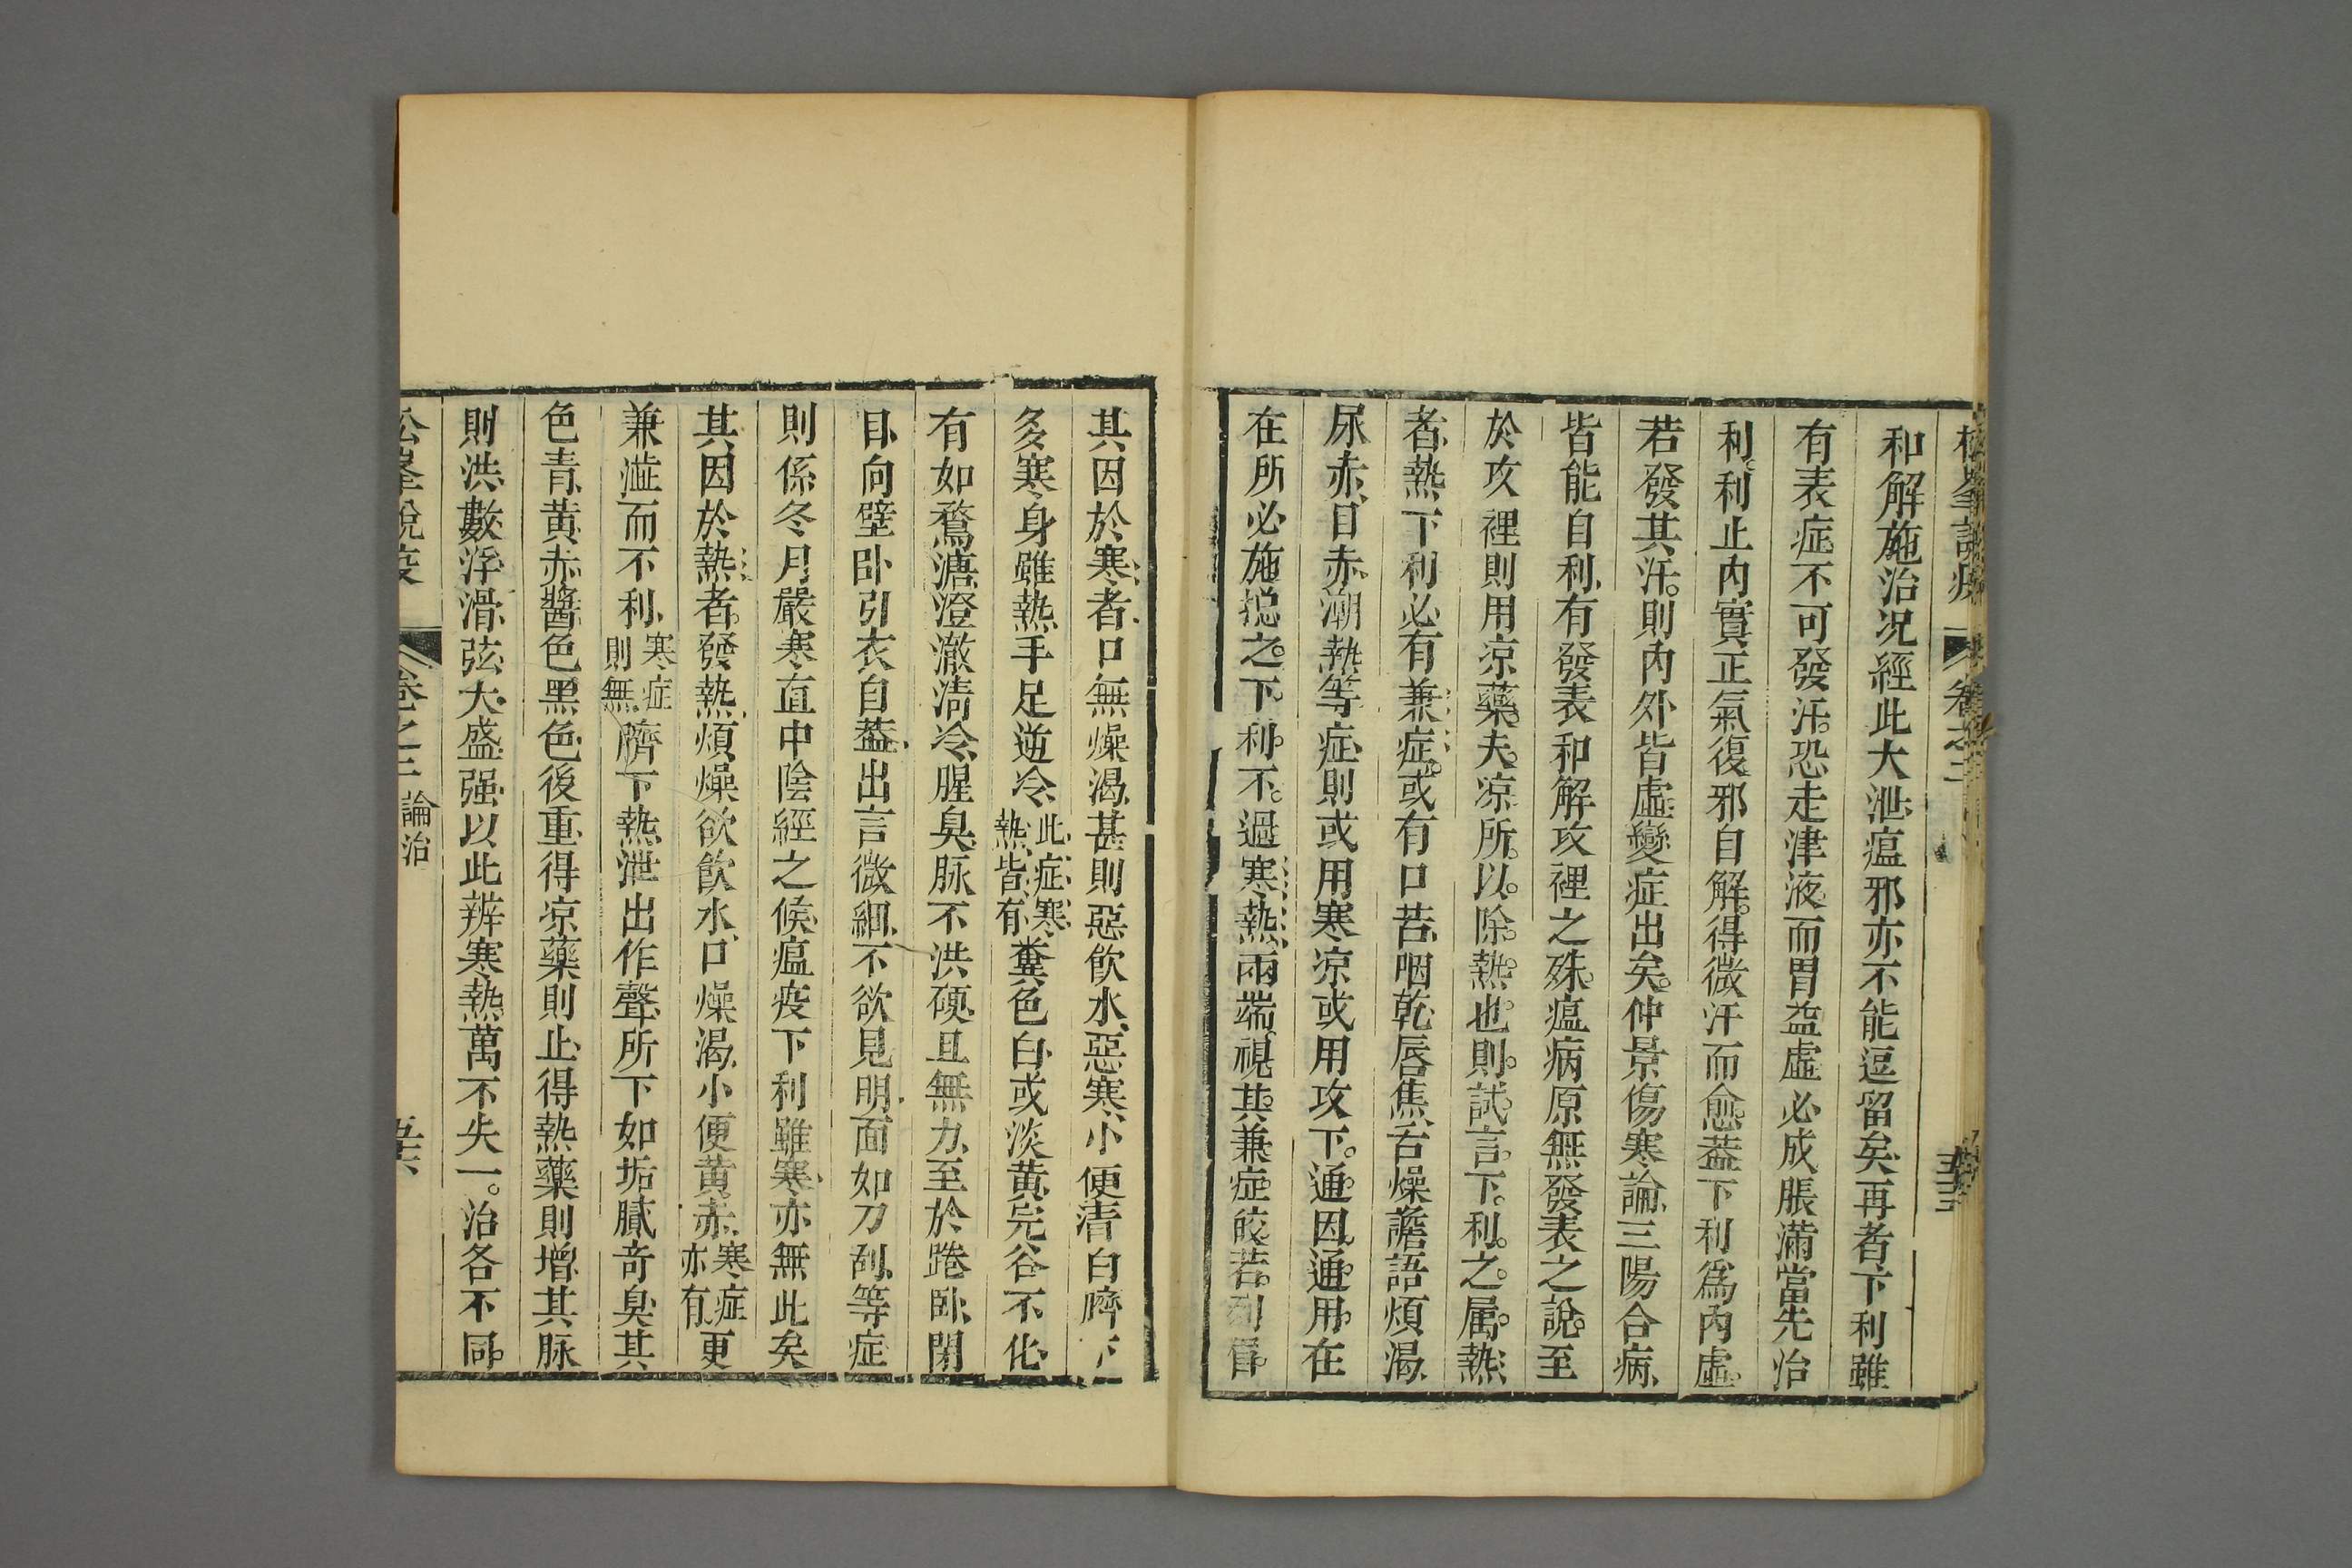 和解施治况經此大泄瘟邪亦不能逗留矣再者下利雖
有表症不可發汗恐走津液而胃益虛必成脹滿當先治
利利止内實正氣復邪自解得微汗而愈葢下利爲内虛
若發其汗則内外皆虛變症出矣仲景傷寒論三陽合病
皆能自利有發表和解攻裡之殊瘟病原無發表之說至
於攻裡則用凉藥夫凉所以除熱也則試言下利之属熱
者熱下利必有兼症或有口苦咽乾唇焦舌燥譫語煩渴
尿赤目赤潮熱等症則或用寒凉或用攻下通因通用在
在所必施揔之下利不過寒熱兩端視其兼症皎若列眉
其因於寒者口無燥渴甚則惡飲水惡寒小便清白臍下
多寒身雖熱手足逆冷此症寒熱皆有糞色白或淡黄完谷不化
有如鶩溏澄澈清冷腥臭脉不洪硬且無力至於踡卧閉
目向壁卧引衣自葢出言微細不欲見明面如刀刮等症
則係冬月嚴寒直中陰經之候瘟疫下利雖寒亦無此矣
其因於熱者發熱煩燥欲飲水口燥渴小便黄赤寒症亦有更
兼澁而不利寒症則無臍下熱泄出作聲所下如垢膩奇臭其
色青黄赤醬色黑色後重得凉藥則止得熱藥則增其脉
則洪數浮滑弦大盛强以此辨寒熱萬不失一治各不同
松峯說疫
卷之二
論治